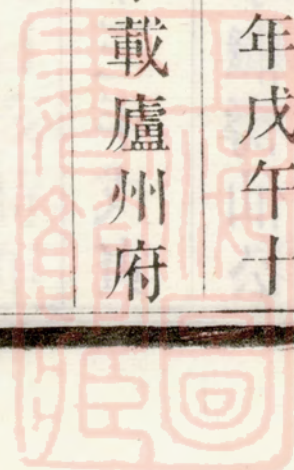 年戊午十
載廬州府